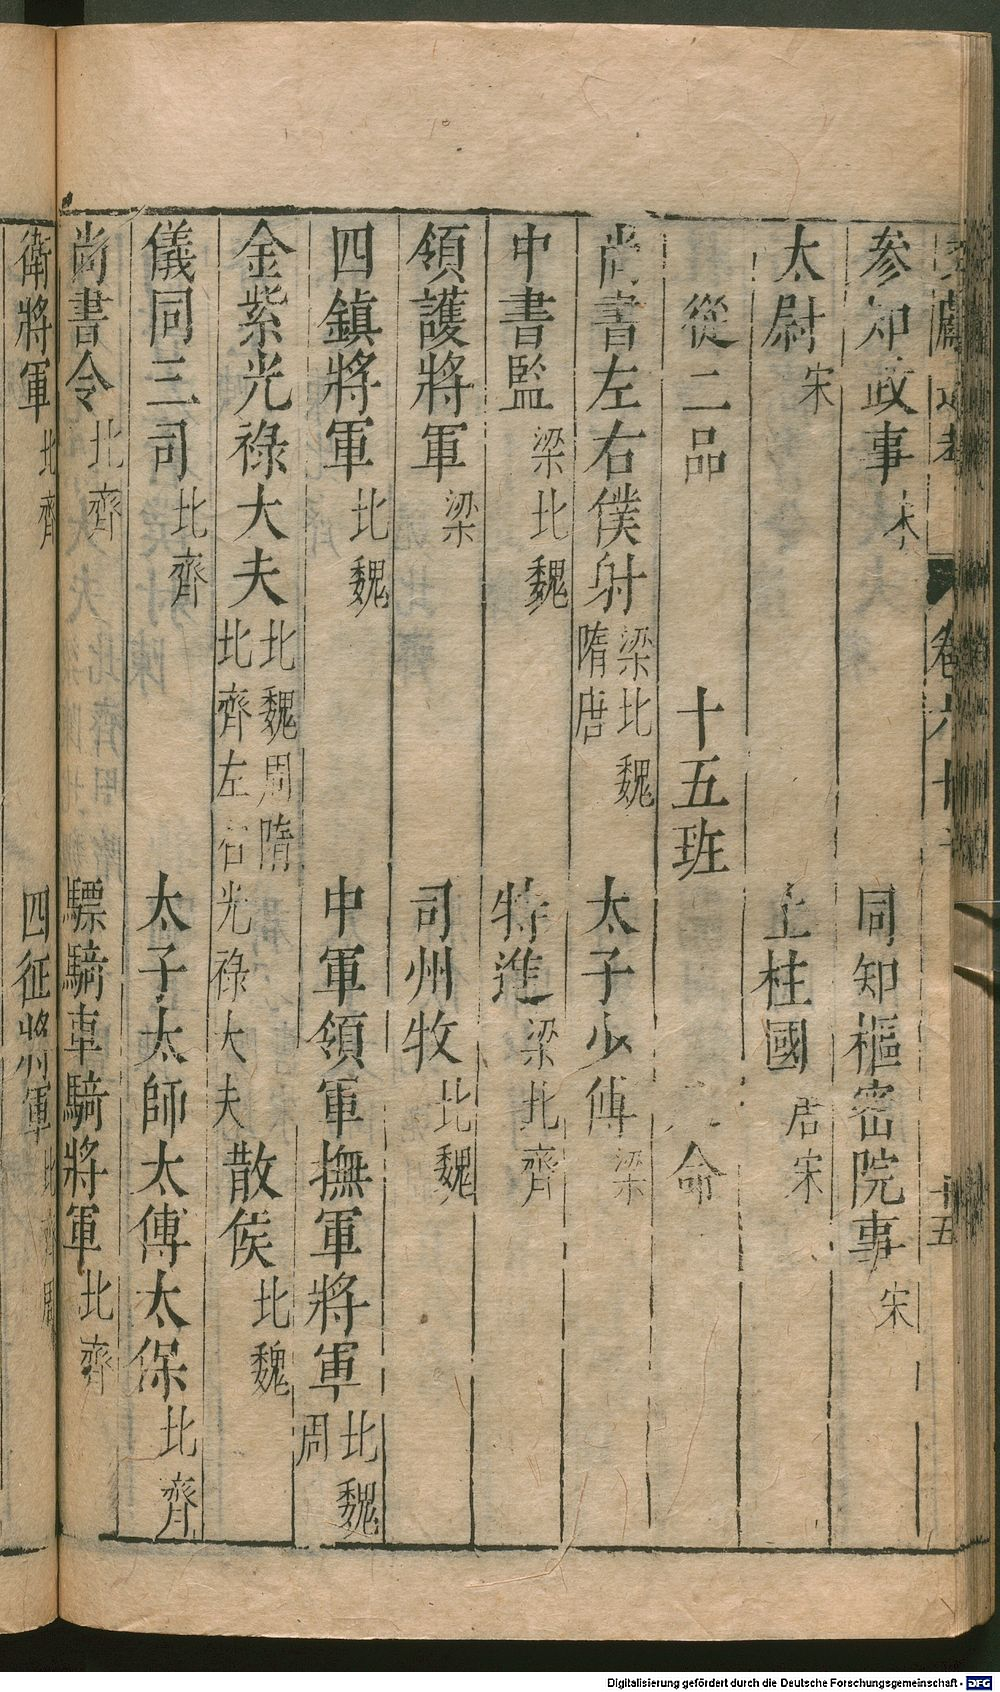 參知政事宋　同知樞密院事宋
太尉宋　上柱國唐宋
從二品　十五班　命
尚書左右僕射梁北魏隋唐　太子少傅梁
中書監梁北魏　特進梁北齊
領護將軍梁　司州牧北魏
四鎮將軍北魏　中軍領軍撫軍將軍北魏周
金紫光祿大夫北魏周隋北齊左右光祿大夫　散侯北魏
儀同三司北齊　太子太師太傅太保北齊
尚書令北齊　驃騎車騎將軍北齊
衛將軍北齊　四征將軍北齊周
卷六十
十五
Digitalisierung gefördert durch die Deutsche Forschungsgemeinschaft - DFG